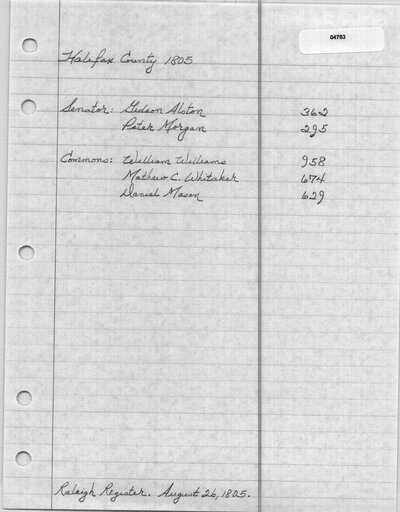 04783
Halifax County 1805
Senator: Gideon Alston 362
Peter Morgan 295
Commons: William Williams 958
Mathew C. Whitaker 674
Daniel Mason 629
Raleigh Register. August 26, 1805.